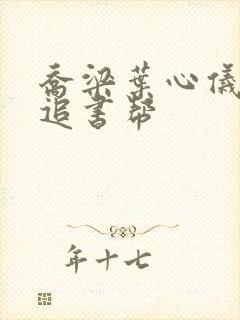 乔梁葉心儀
追書幇
年十七